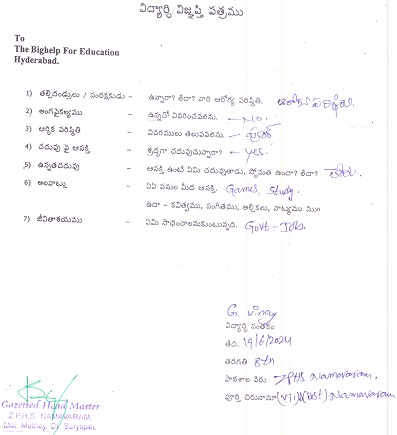 విద్యార్థి విజ్ఞప్తి పత్రము
To
The Bighelp For Education
Hyderabad.
1) తల్లిదండ్రులు / సంరక్షకుడు – ఉన్నారా? లేదా? వారి ఆరోగ్య పరిస్థితి.
2) అంగవైకల్యము – ఉన్నచో వివరించవలెను. – No.
3) ఆర్థిక పరిస్థితి – వివరములు తెలుపవలెను. –
4) చదువు పై ఆసక్తి – శ్రద్ధగా చదువుచున్నారా? – Yes.
5) ఉన్నతచదువు – ఆసక్తి ఉంటే ఏమి చదువుతాడు, స్తోమత ఉందా? లేదా?
6) అలవాట్లు – ఏఏ పనుల మీద ఆసక్తి. Games, Study.
ఉదా – కవిత్వము, సంగీతము, అల్లికలు, నాట్యము మొ॥
7) జీవితాశయము – ఏమి సాధించాలనుకుంటున్నది. Govt – Job.
G. Vinay
విద్యార్థి సంతకం
తేది. 19/6/2024
తరగతి 8th
పాఠశాల పేరు ZPHS Namavaram.
పూర్తి చిరునామా (Vill)&(Post) Namavaram
Gazetted Head Master
Z.P.H.S. NAMAVARAM,
Mdl. Mothey, Dt. Suryapet.